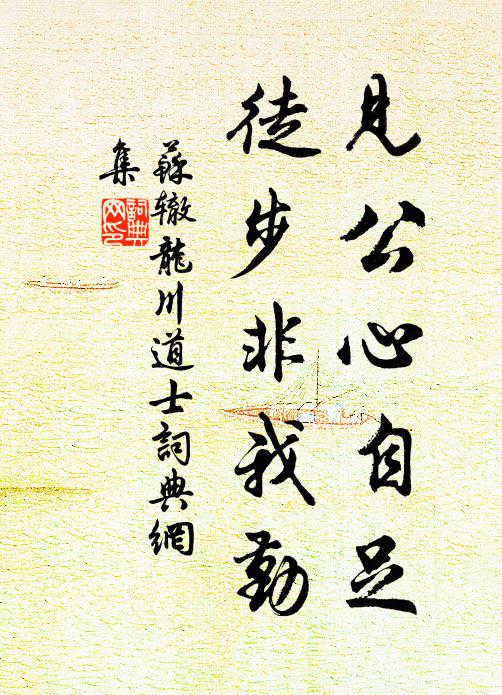 見公心自足
徒步非我勤
蘇轍龍川道士詞典網
集
詞典网印